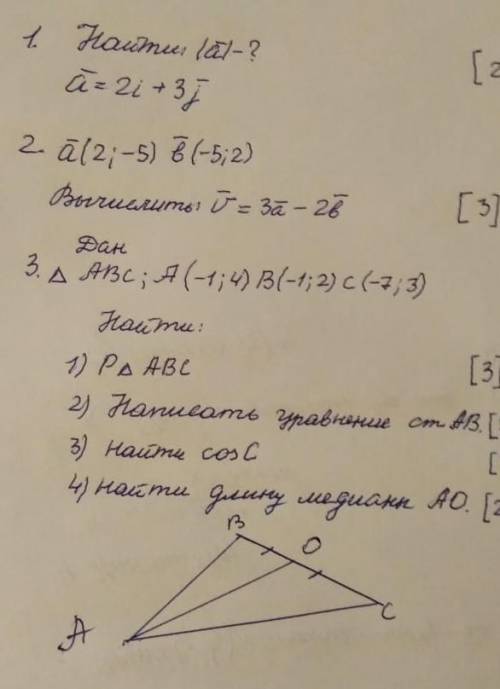 1. Найти: |ā| - ?
ā = 2i + 3j̄
2. ā(2; -5) b̄(-5; 2)
Вычислить: ῡ = 3ā - 2b̄
Дан
3. △ ABC; A(-1; 4) B(-1; 2) C(-7; 3)
Найти:
1) P△ ABC
2) Написать уравнение ст AB.
3) Найти cosC
4) Найти длину медианы AO.
[2
[3]
[3]
[
[
[2
B
O
C
A